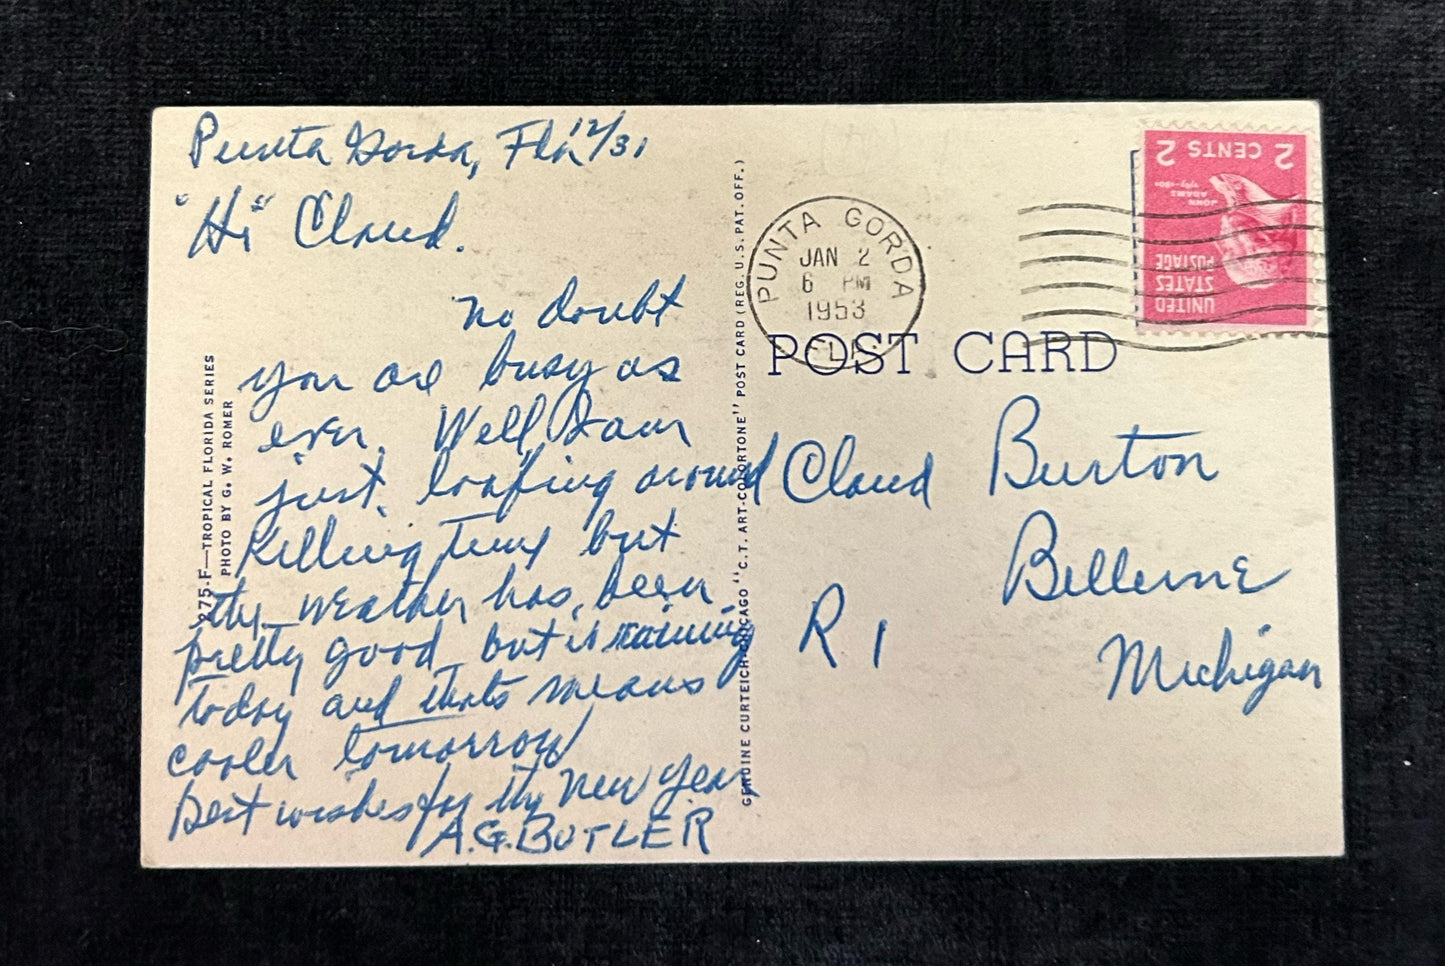 Punta Gorda, Fla 12/31
"Hi" Claud.
no doubt
you are busy as
ever. Well I am
just loafing around
killing time but
the weather has been
pretty good but it raining
today and thats means
cooler tomorrow
Best wishes for the New Year
A.G. BUTLER
275-F—TROPICAL FLORIDA SERIES
PHOTO BY G. W. ROMER
GENUINE CURTEICH-CHICAGO "C.T. ART-COLORTONE" POST CARD (REG. U.S. PAT. OFF.)
PUNTA GORDA
JAN 2
6 PM
1953
FLA.
UNITED
STATES
POSTAGE
JOHN
ADAMS
1797-1801
2 CENTS 2
POST CARD
Claud Burton
Bellevue
R 1
Michigan